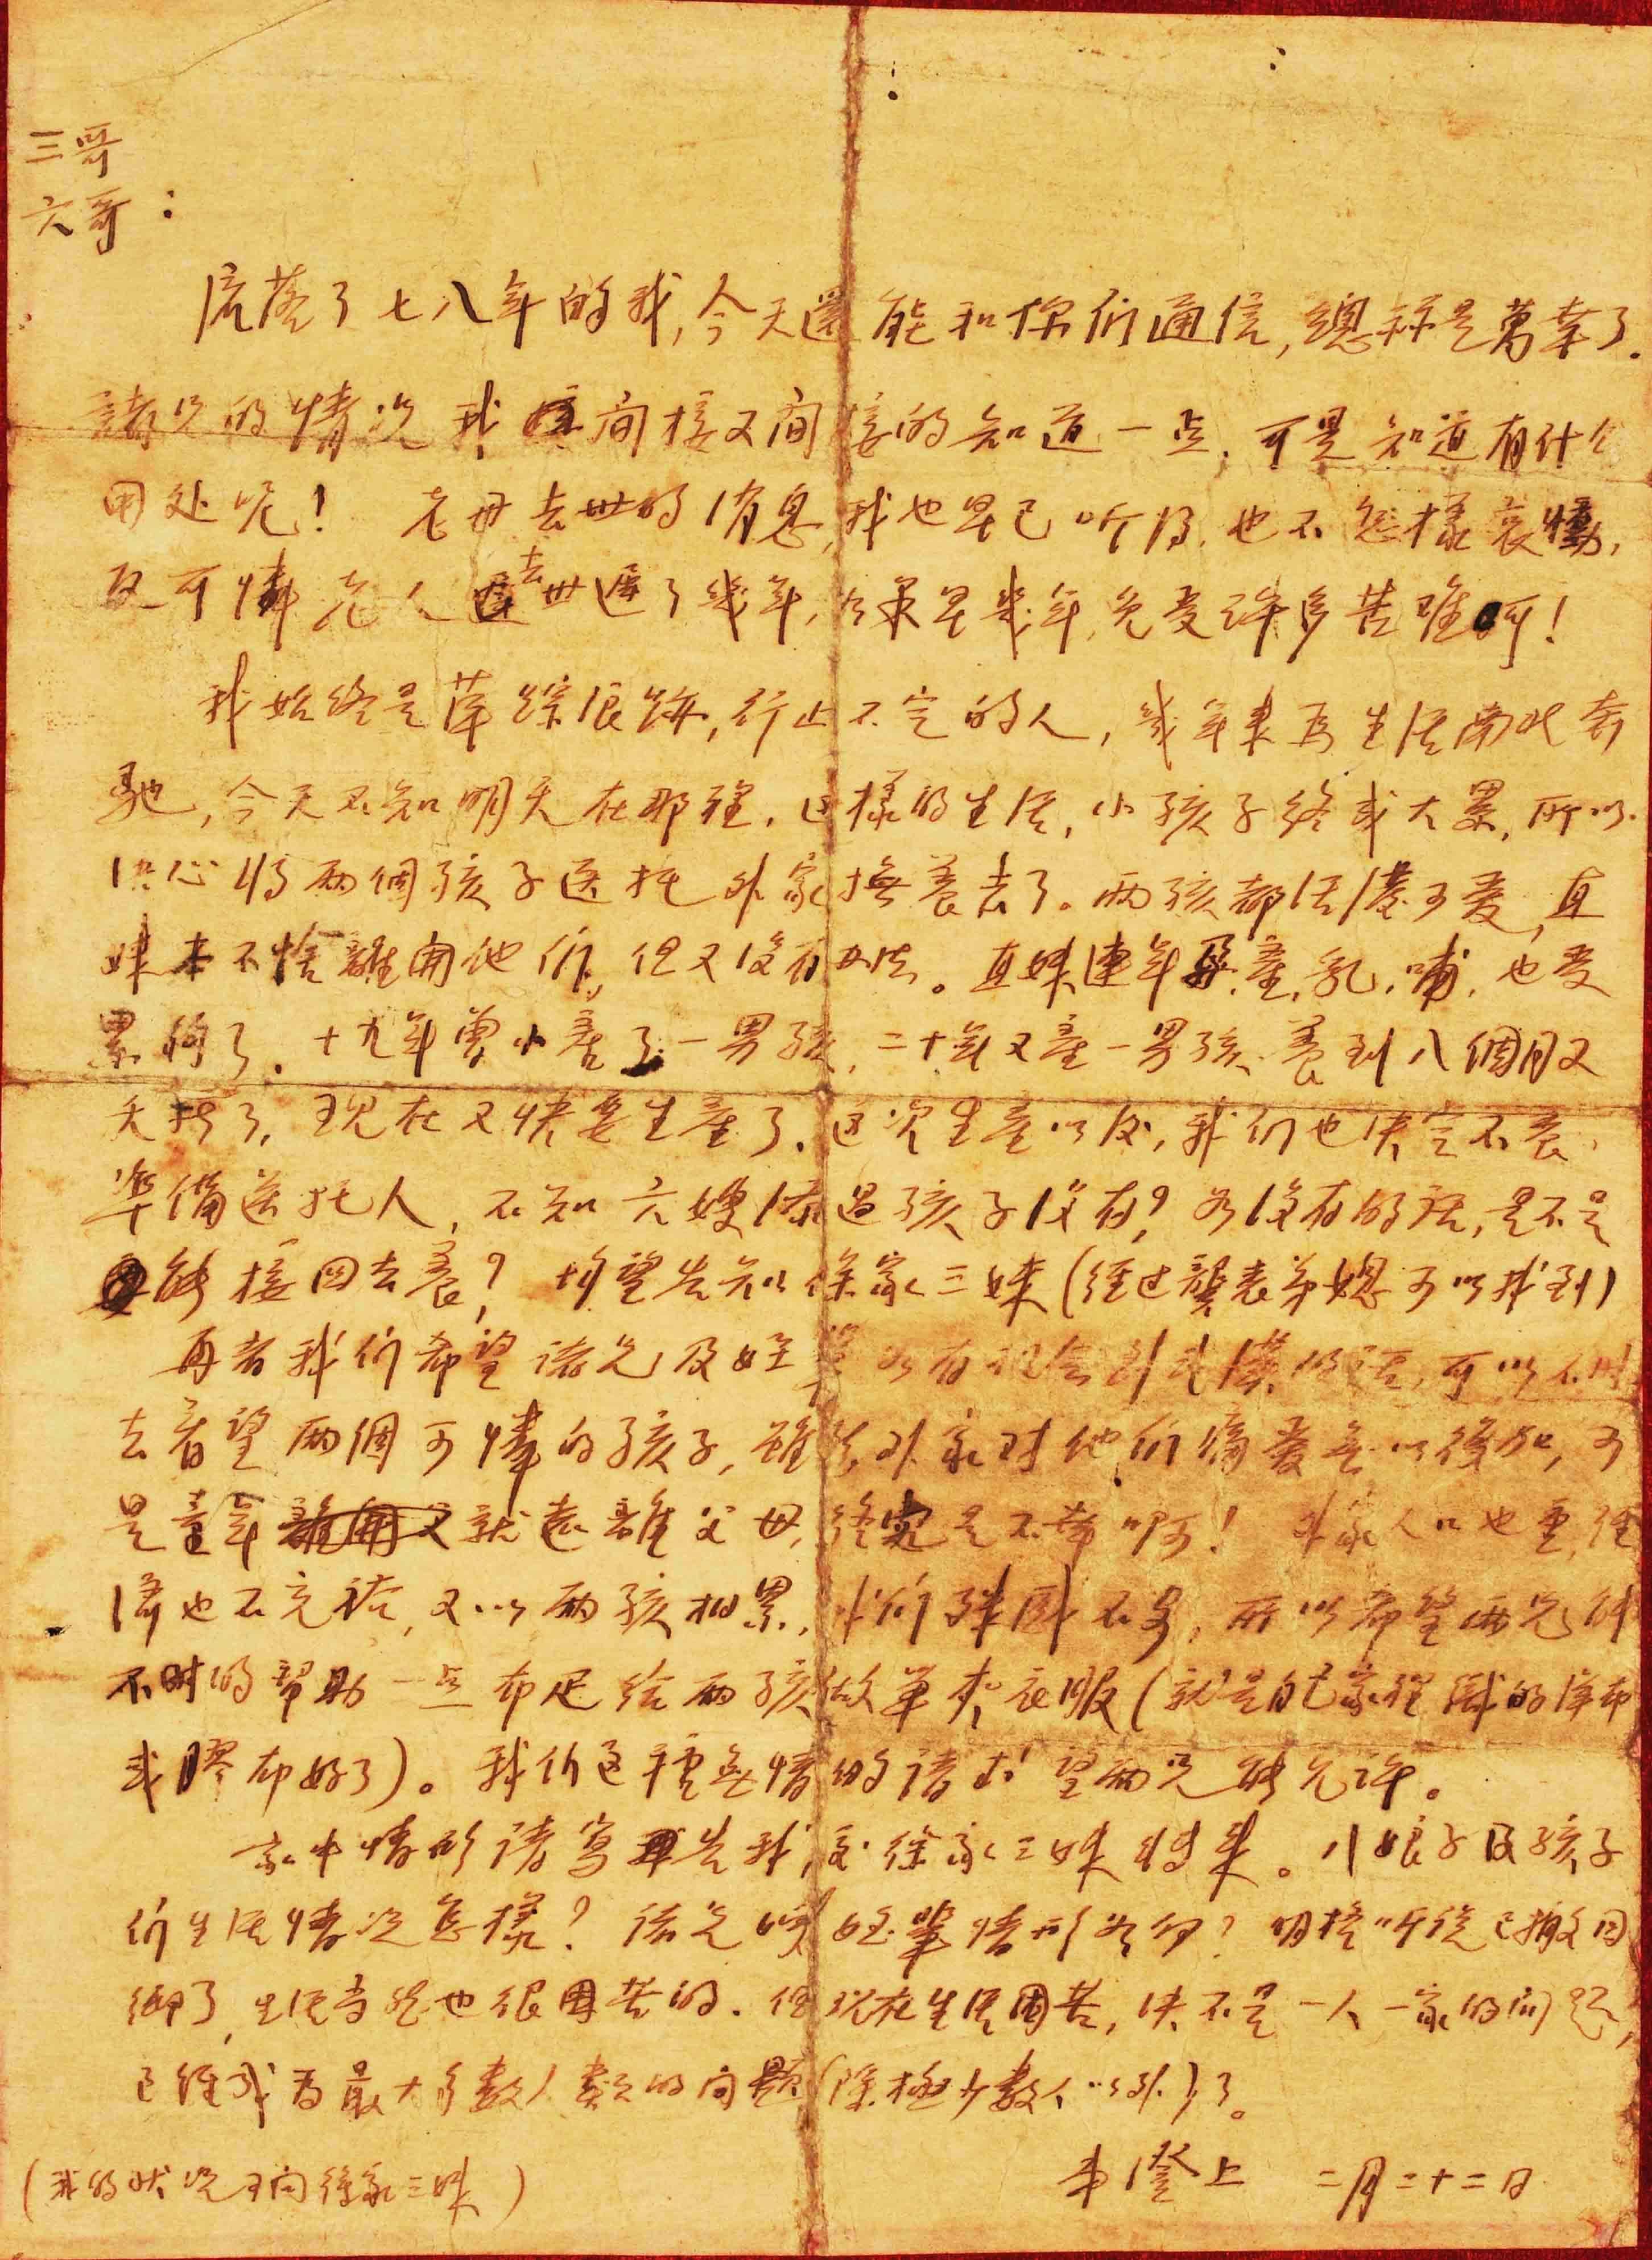 三哥
六哥：
流落了七八年的我，今天還能和你们通信，總祘是萬幸了．
諸兄的情况我 间接又间接的知道一点，可是知道有什么
用处呢！老母去世的消息，我也早已听得，也不怎樣哀慟，
反可憐老人去世遲了幾年，如果早幾年，免受许多苦难呵！
我始终是萍踪浪跡，行止不定的人，幾年来为生活南北奔
馳，今天不知明天在那裡．这樣的生活，小孩子终成大累，所以
决心将两個孩子送托外家撫養去了。两孩都活潑可爱，直
妹本不忍離開他们，但又没有办法。直妹连年孕，產，乳，哺，也受
累夠了．十九年曾小產了一男孩，二十年又產一男孩，養到八個月又
夭折了，现在又快要生產了．这次生產以後，我们也决定不養，
準備送托人，不知六嫂添过孩子没有？如没有的话，是不是
能接回去養？均望告知徐家三妹（经过龔表弟媳可以找到）
再者我们希望诸兄及姪輩如有机会到武漢的话，可以不时
去看望两個可憐的孩子，雖然外家对他们痛爱無以復加，可
是童年就遠離父母，终究是不幸啊！外家人口也重，经
濟也不充裕，又以两孩相累，我们殊感不安，所以希望两兄能
不时的帮助一点布疋给两孩做单夹衣服（就是自己家裡織的洋布
或膠布好了）。我们这種無情的请求望两兄能允许。
家中情形请寫告我，交徐家三妹转来。八娘子及孩子
们生活情况怎樣？诸兄嫂姪輩情形如何？明格听说已搬回
鄉了，生活当然也很困苦的．但现在生活困苦，决不是一人一家的问题，
已经成为最大多数人类的问题（除極少数人以外）了。
弟澄上 二月二十二日
（我的状况可问徐家三妹）